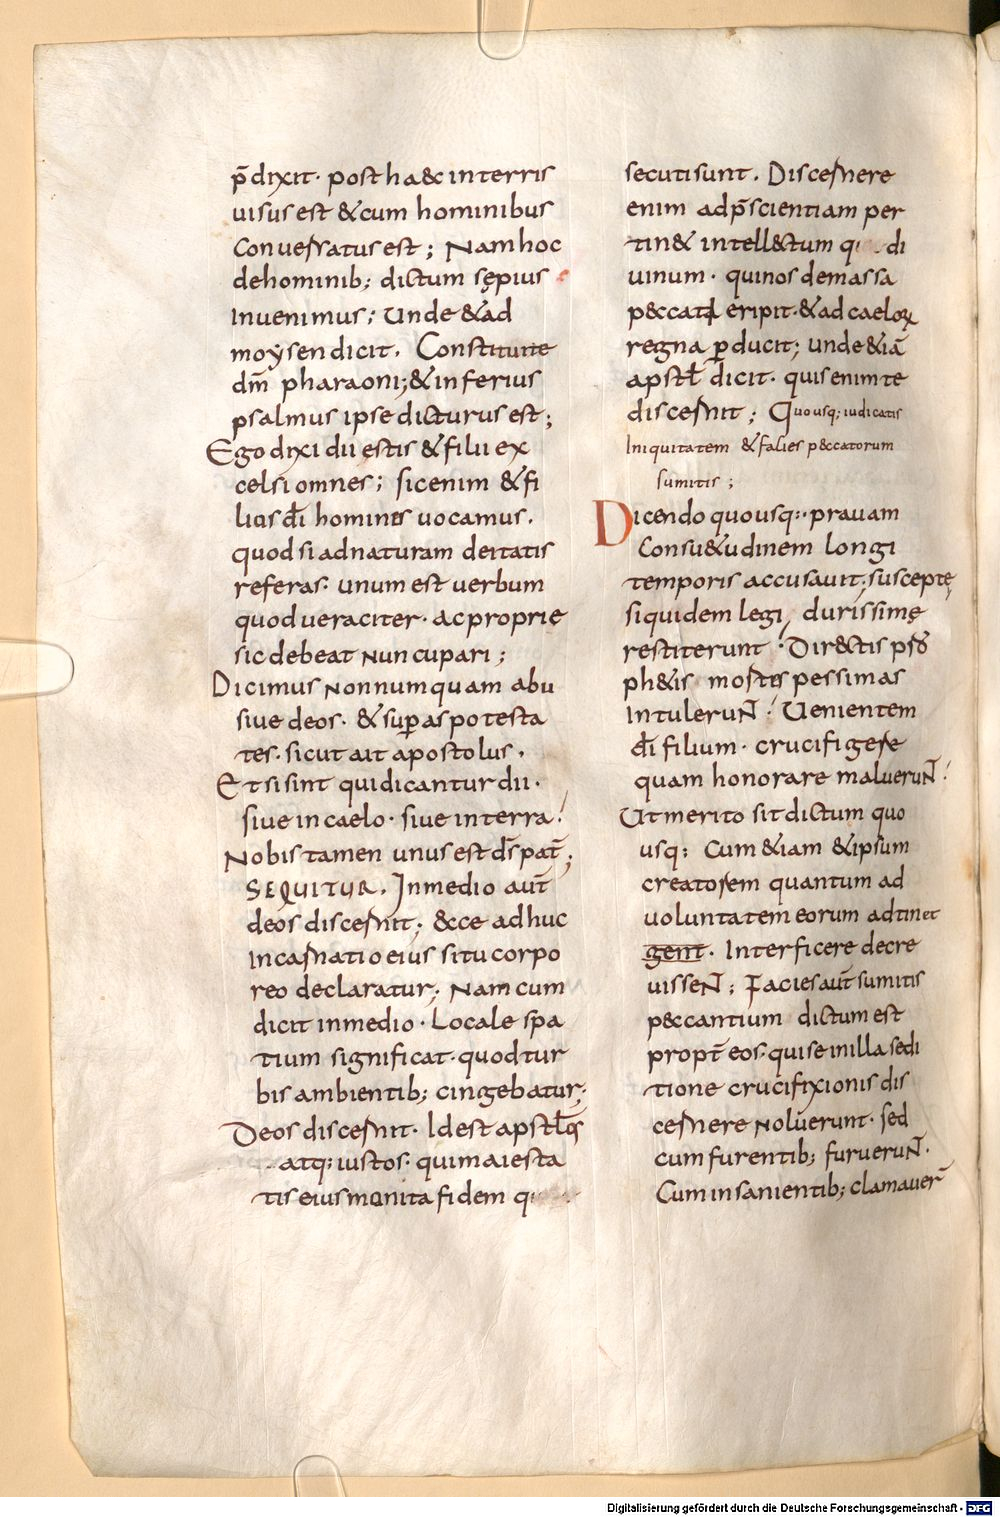 p̄dixit· post ha&c interris
uisus est &cum hominibus
Conuersatus est; Nam hoc
dehominib; dictum sępius
Inuenimus; Unde &ad
moẏsen dicit. Constitui te
dm̄ pharaoni; &inferius
psalmus ipse dicturus est;
Ego dixi dii estis &filii ex
celsi omnes; sicenim &fi
lius dī hominis uocamus.
quod si adnaturam deitatis
referas· unum est uerbum
quod ueraciter· ac proprie
sic debeat Nuncupari;
Dicimus Nonnumquam abu
siue deos· &suꝑas potesta
tes· sicut ait apostolus.
Et si sint qui dicantur dii·
siue in caelo· siue in terra!
Nobis tamen unus est ds̄ pat̄;
SEQUITUR. Inmedio aut̄
deos discernit; &cce adhuc
Incarnatio eius situ corpo
reo declaratur; Nam cum
dicit inmedio· Locale spa
tium significat· quod tur
bis ambientib; cingebatur;
Deos discernit· Id est apstłos
atq: iustos· qui maiesta
tis eius monita fidem
secuti sunt. Discernere
enim adp̄scientiam per
tin& intell&ctum di
uinum· qui nos de massa
p&ccati eripit· &ad caeloꝝ
regna ꝑducit; unde &iā
apstł dicit· quis enim te
discernit; Quousq; iudicatis
Iniquitatem &facies p&ccatorum
sumitis;
Dicendo quousq:· prauam
Consu&udinem longi
temporis accusauit; susceptę
siquidem legi, durissimę
restiterunt· Dir&ctis psō
ph&is mortes pessimas
IntuleruN̄! Uenientem
dī filium· crucifigere
quam honorare malueruN̄!
Ut merito sit dictum quo
usq; Cum &iam &ipsum
creatorem quantum ad
uoluntatem eorum adtinet
gent· Interficere decre
uisseN̄; Facies aut̄ sumitis
p&ccantium dictum est
propt̄ eos· qui se in illa sedi
tione crucifixionis dis
cernere Noluerunt· sed
cum furentib; furueruN̄·
Cum insanientib; clamauer̄